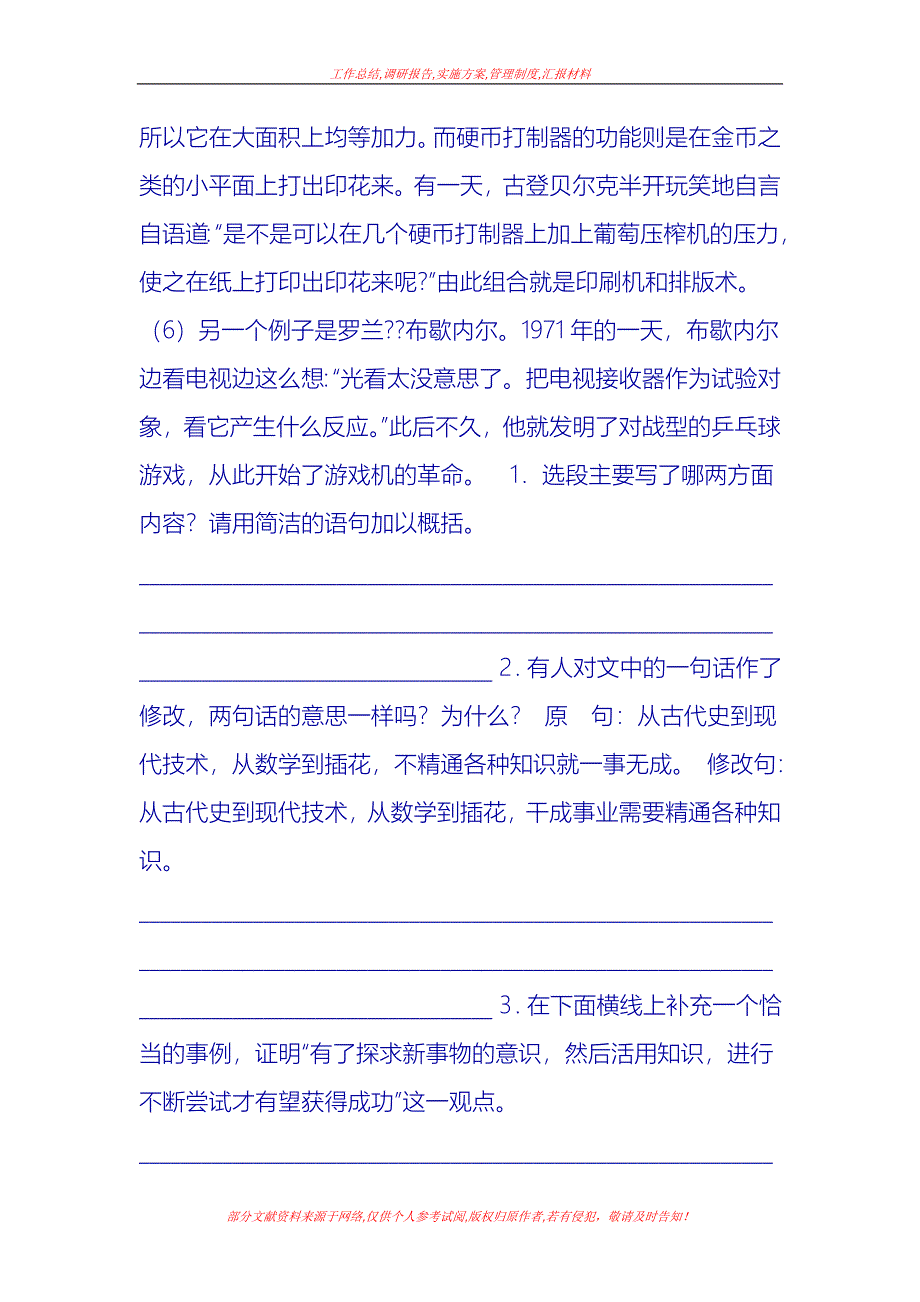 工作总结,调研报告,实施方案,管理制度,汇报材料
所以它在大面积上均等加力。而硬币打制器的功能则是在金币之
类的小平面上打出印花来。有一天，古登贝尔克半开玩笑地自言
自语道:“是不是可以在几个硬币打制器上加上葡萄压榨机的压力，
使之在纸上打印出印花来呢?”由此组合就是印刷机和排版术。
（6）另一个例子是罗兰??布歇内尔。1971年的一天，布歇内尔
边看电视边这么想:“光看太没意思了。把电视接收器作为试验对
象，看它产生什么反应。”此后不久，他就发明了对战型的乒乓球
游戏，从此开始了游戏机的革命。 1．选段主要写了哪两方面
内容？请用简洁的语句加以概括。
______________________________________________
______________________________________________
__________________________ 2．有人对文中的一句话作了
修改，两句话的意思一样吗？为什么？ 原 句：从古代史到现
代技术，从数学到插花，不精通各种知识就一事无成。 修改句：
从古代史到现代技术，从数学到插花，干成事业需要精通各种知
识。
______________________________________________
______________________________________________
__________________________ 3．在下面横线上补充一个恰
当的事例，证明“有了探求新事物的意识，然后活用知识，进行
不断尝试才有望获得成功”这一观点。
______________________________________________
部分文献资料来源于网络,仅供个人参考试阅,版权归原作者,若有侵犯，敬请及时告知！